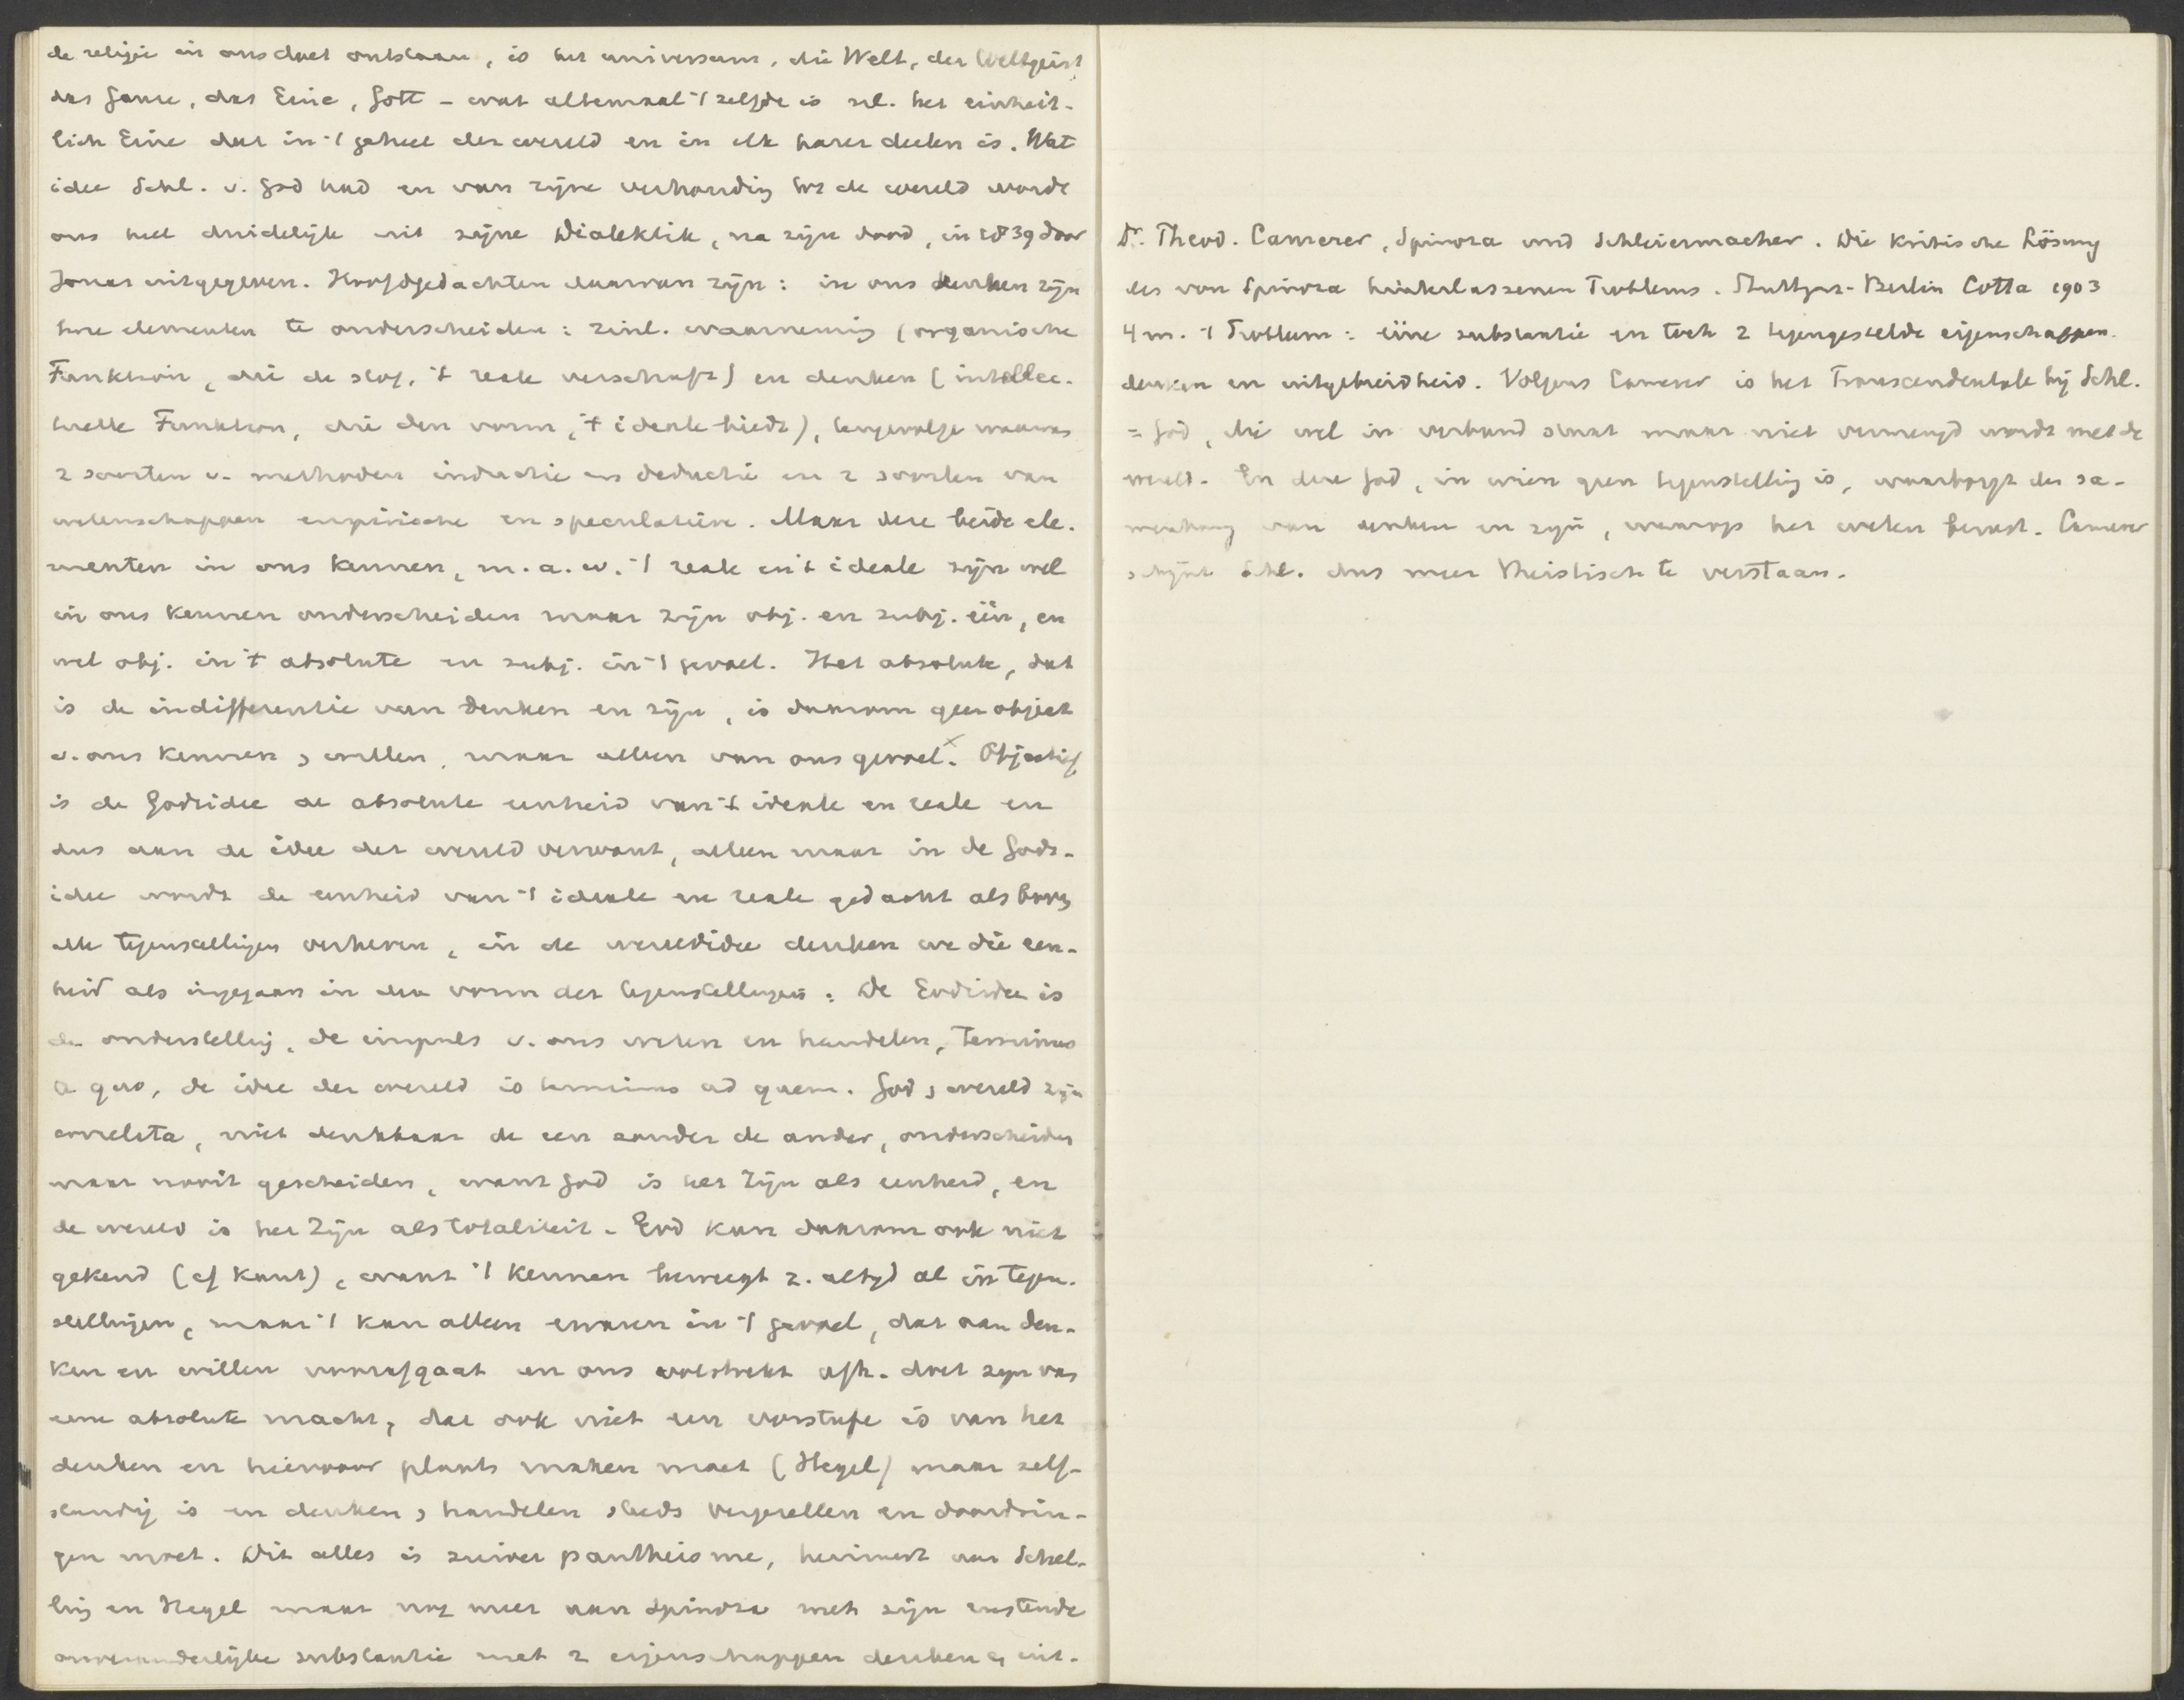 de religie in ons doet ontstaan, is het universum, die Welt, der Weltgeist
das Ganze, das Eine, Gott - wat altemaal 't zelfde is nl. het einheit-
lich Eine dat in 't geheel der wereld en in elk harer deelen is. Wat
idee Schl. v. God had en van zijne verhouding tot de wereld wordt
ons het duidelijk uit zijne Dialektik, na zijn dood, in 1839 door
Jonas uitgegeven. Hoofdgedachten daarvan zijn: in ons denken zijn
twee elementen te onderscheiden: zinl. waarneming (organische
Funktion, die de stof, 't reale verschaft) en denken (intellec-
tuelle Funktion, die den vorm, 't ideale biedt), tengevolge waarvan
2 soorten v. methoden inductie en deductie en 2 soorten van
wetenschappen empirische en speculatieve. Maar deze beide ele-
menten in ons kennen, m.a.w. 't reale en 't ideale zijn wel
in ons kennen onderscheiden maar zijn obj. en subj. één, en
wel obj. in 't absolute en subj. in 't gevoel. Het absolute, dat
is de indifferentie van denken en zijn, is daarom geen object
v. ons kennen, willen, maar alleen van ons gevoel.x Objectief
is de Godsidee de absolute eenheid van 't ideale en reale en
dus aan de idee der wereld verwant, alleen maar in de Gods-
idee wordt de eenheid van 't ideale en reale gedacht als boven
alle tegenstellingen verheven, in de wereldidee denken we die een-
heid als ingegaan in den vorm der tegenstellingen: De Godsidee is
de onderstelling, de impuls v. ons weten en handelen, terminus
a quo, de idee der wereld is terminus ad quem. God, wereld zijn
correlata, niet denkbaar de een zonder de ander, onderscheiden
maar nooit gescheiden, want God is het zijn als eenheid, en
de wereld is het zijn als totaliteit. God kan daarom ook niet
gekend (cf Kant), want 't kennen beweegt z. altijd al in tegen-
stellingen, maar 't kan alleen ervaren in 't gevoel, dat aan den-
ken en willen voorafgaat en ons volstrekt afh. doet zijn van
eene absolute macht, dat ook niet een vorstufe is van het
denken en hiervoor plaats maken moet (Hegel) maar zelf-
standig is en denken, handelen steds vergezellen en doordrin-
gen moet. Dit alles is zuiver pantheisme, herinnert aan Schel-
ling en Hegel maar nog meer aan Spinoza met zijn rustende
onveranderlijke substantie met 2 eigenschappen denken en uit-
Dr. Theod. Camerer, Spinoza und Schleiermacher. Die kritische Lösung
des von Spinoza hinterlassenen Problems. Stuttgart-Berlin Cotta 1903
4 m. 't Probleem: ééne substantie en toch 2 tegengestelde eigenschappen
denken en uitgebreidheid. Volgens Camerer is het Transcendentale bij Schl.
= God, die wel in verband staat maar niet vermengd wordt met de
wereld. En deze God, in wien geen tegenstelling is, waarborgt den sa-
menhang van denken en zijn, waarop het weten berust. Camerer
schijnt Schl. dus meer theistisch te verstaan.